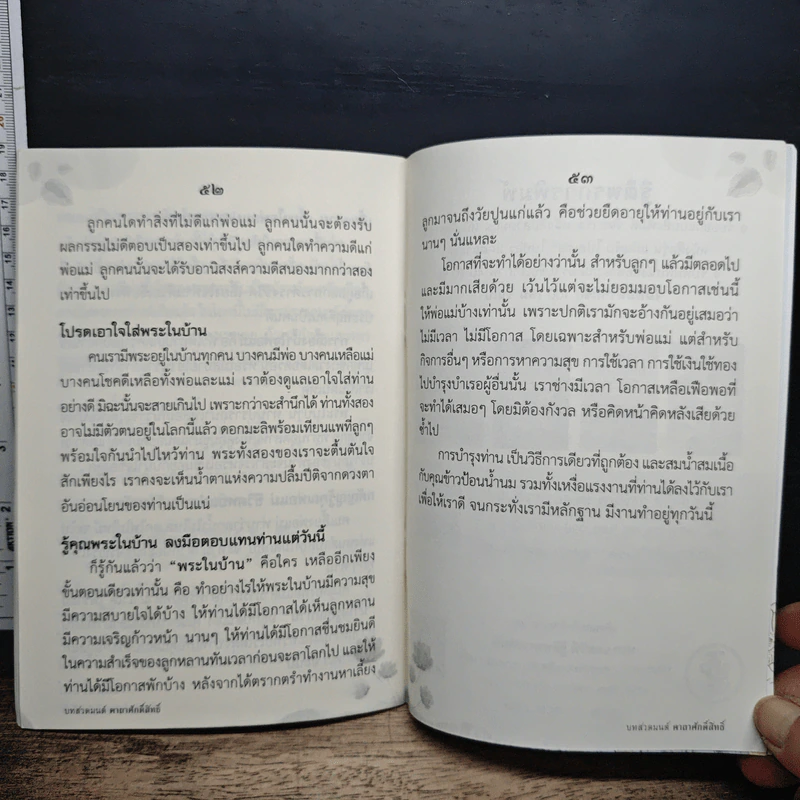 ๕๒
ลูกคนใดทำสิ่งที่ไม่ดีแก่พ่อแม่ ลูกคนนั้นจะต้องรับ
ผลกรรมไม่ดีตอบเป็นสองเท่าขึ้นไป ลูกคนใดทำความดีแก่
พ่อแม่ ลูกคนนั้นจะได้รับอานิสงส์ความดีสนองมากกว่าสอง
เท่าขึ้นไป
โปรดเอาใจใส่พระในบ้าน
คนเรามีพระอยู่ในบ้านทุกคน บางคนมีพ่อ บางคนเหลือแม่
บางคนโชคดีเหลือทั้งพ่อและแม่ เราต้องดูแลเอาใจใส่ท่าน
อย่างดี มิฉะนั้นจะสายเกินไป เพราะกว่าจะสำนึกได้ ท่านทั้งสอง
อาจไม่มีตัวตนอยู่ในโลกนี้แล้ว ดอกมะลิพร้อมเทียนแพที่ลูกๆ
พร้อมใจกันนำไปไหว้ท่าน พระทั้งสองของเราจะตื้นตันใจ
สักเพียงไร เราคงจะเห็นน้ำตาแห่งความปลื้มปีติจากดวงตา
อันอ่อนโยนของท่านเป็นแน่
รู้คุณพระในบ้าน ลงมือตอบแทนท่านแต่วันนี้
ก็รู้กันแล้วว่า “พระในบ้าน” คือใคร เหลืออีกเพียง
ขั้นตอนเดียวเท่านั้น คือ ทำอย่างไรให้พระในบ้านมีความสุข
มีความสบายใจได้บ้าง ให้ท่านได้มีโอกาสได้เห็นลูกหลาน
มีความเจริญก้าวหน้า นานๆ ให้ท่านได้มีโอกาสชื่นชมยินดี
ในความสำเร็จของลูกหลานทันเวลาก่อนจะลาโลกไป และให้
ท่านได้มีโอกาสพักบ้าง หลังจากได้ตรากตรำทำงานหาเลี้ยง
บทสวดมนต์ คาถาศักดิ์สิทธิ์
๕๓
ลูกมาจนถึงวัยปูนแก่แล้ว คือช่วยยืดอายุให้ท่านอยู่กับเรา
นานๆ นั่นแหละ
โอกาสที่จะทำได้อย่างว่านั้น สำหรับลูกๆ แล้วมีตลอดไป
และมีมากเสียด้วย เว้นไว้แต่จะไม่ยอมมอบโอกาสเช่นนี้
ให้พ่อแม่บ้างเท่านั้น เพราะปกติเรามักจะอ้างกันอยู่เสมอว่า
ไม่มีเวลา ไม่มีโอกาส โดยเฉพาะสำหรับพ่อแม่ แต่สำหรับ
กิจการอื่นๆ หรือการหาความสุข การใช้เวลา การใช้เงินใช้ทอง
ไปบำรุงบำเรอผู้อื่นนั้น เราช่างมีเวลา โอกาสเหลือเฟือพอที่
จะทำได้เสมอๆ โดยมิต้องกังวล หรือคิดหน้าคิดหลังเสียด้วย
ซ้ำไป
การบำรุงท่าน เป็นวิธีการเดียวที่ถูกต้อง และสมน้ำสมเนื้อ
กับคุณข้าวป้อนน้ำนม รวมทั้งเหงื่อแรงงานที่ท่านได้ลงไว้กับเรา
เพื่อให้เราดี จนกระทั่งเรามีหลักฐาน มีงานทำอยู่ทุกวันนี้
บทสวดมนต์ คาถาศักดิ์สิทธิ์